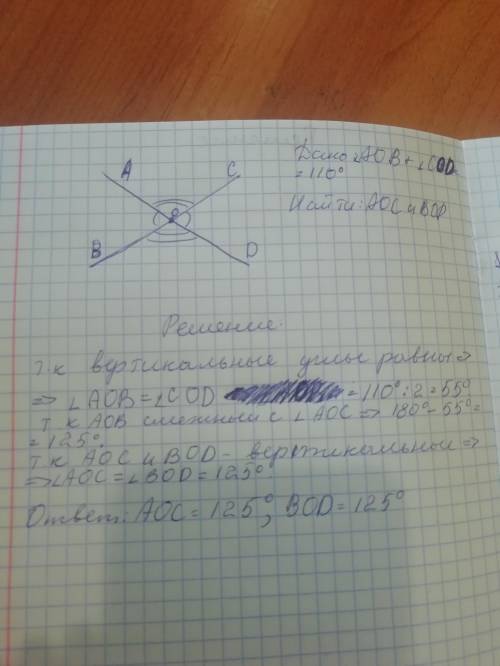 A
C
Дано: ∠AOB + ∠COD
= 110°
Найти: AOC и BOD
O
B
D
Решение:
т.к вертикальные углы равны ⇒
⇒ ∠AOB = ∠COD = 110° : 2 = 55°
т к AOB смежный с ∠AOC ⇒ 180° - 55° =
= 125°.
т к AOC и BOD - вертикальные ⇒
⇒ ∠AOC = ∠BOD = 125°.
Ответ: AOC = 125°, BOD = 125°